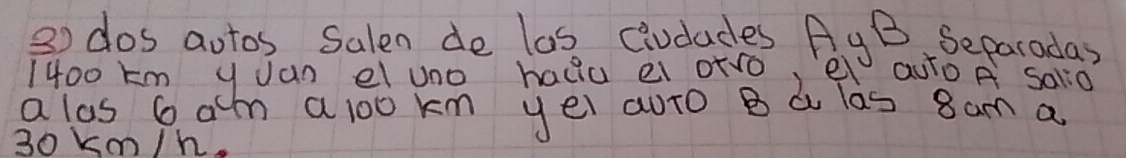 3) dos autos Salen de las Ciudades A y B, Separadas
1400 km y van el uno hacia el otro, el auto A Salio
a las 6 am a 100 km y el auto B a las 8 am a
30 km/h.